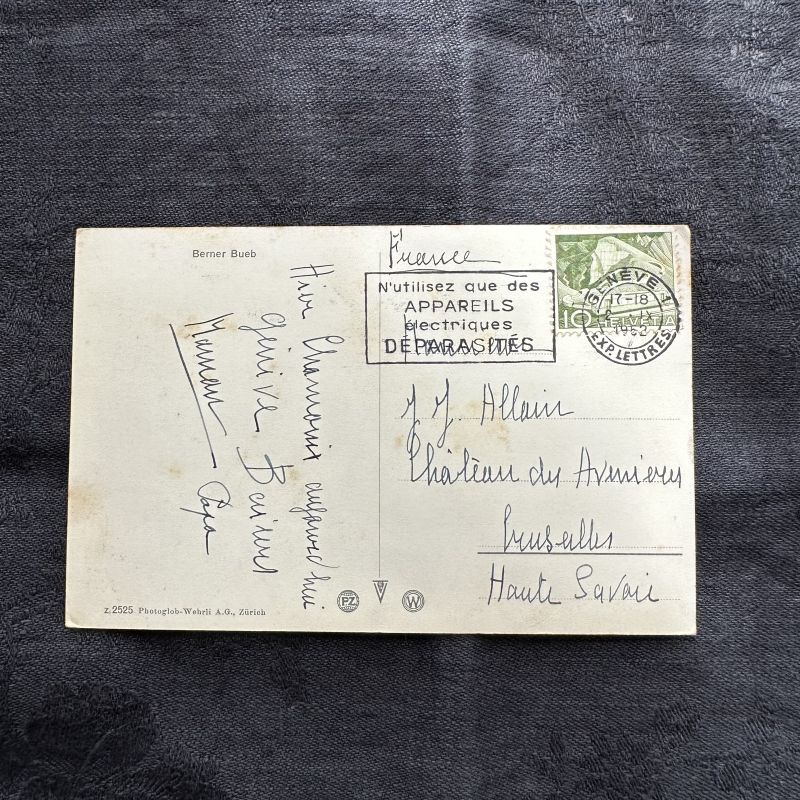 Berner Bueb
Hier Chamonix aujourd'hui
Genève Baisers
Maman Papa
Z. 2525 Photoglob-Wehrli A.G., Zürich
PZ
W
France
N'utilisez que des
APPAREILS
électriques
DÉPARASITÉS
GENÈVE 1
17-18
IX
1952
EXP. LETTRES
10
HELVETIA
Monsieur
J J. Allain
Château des Avenieres
Cruseilles
Haute Savoie